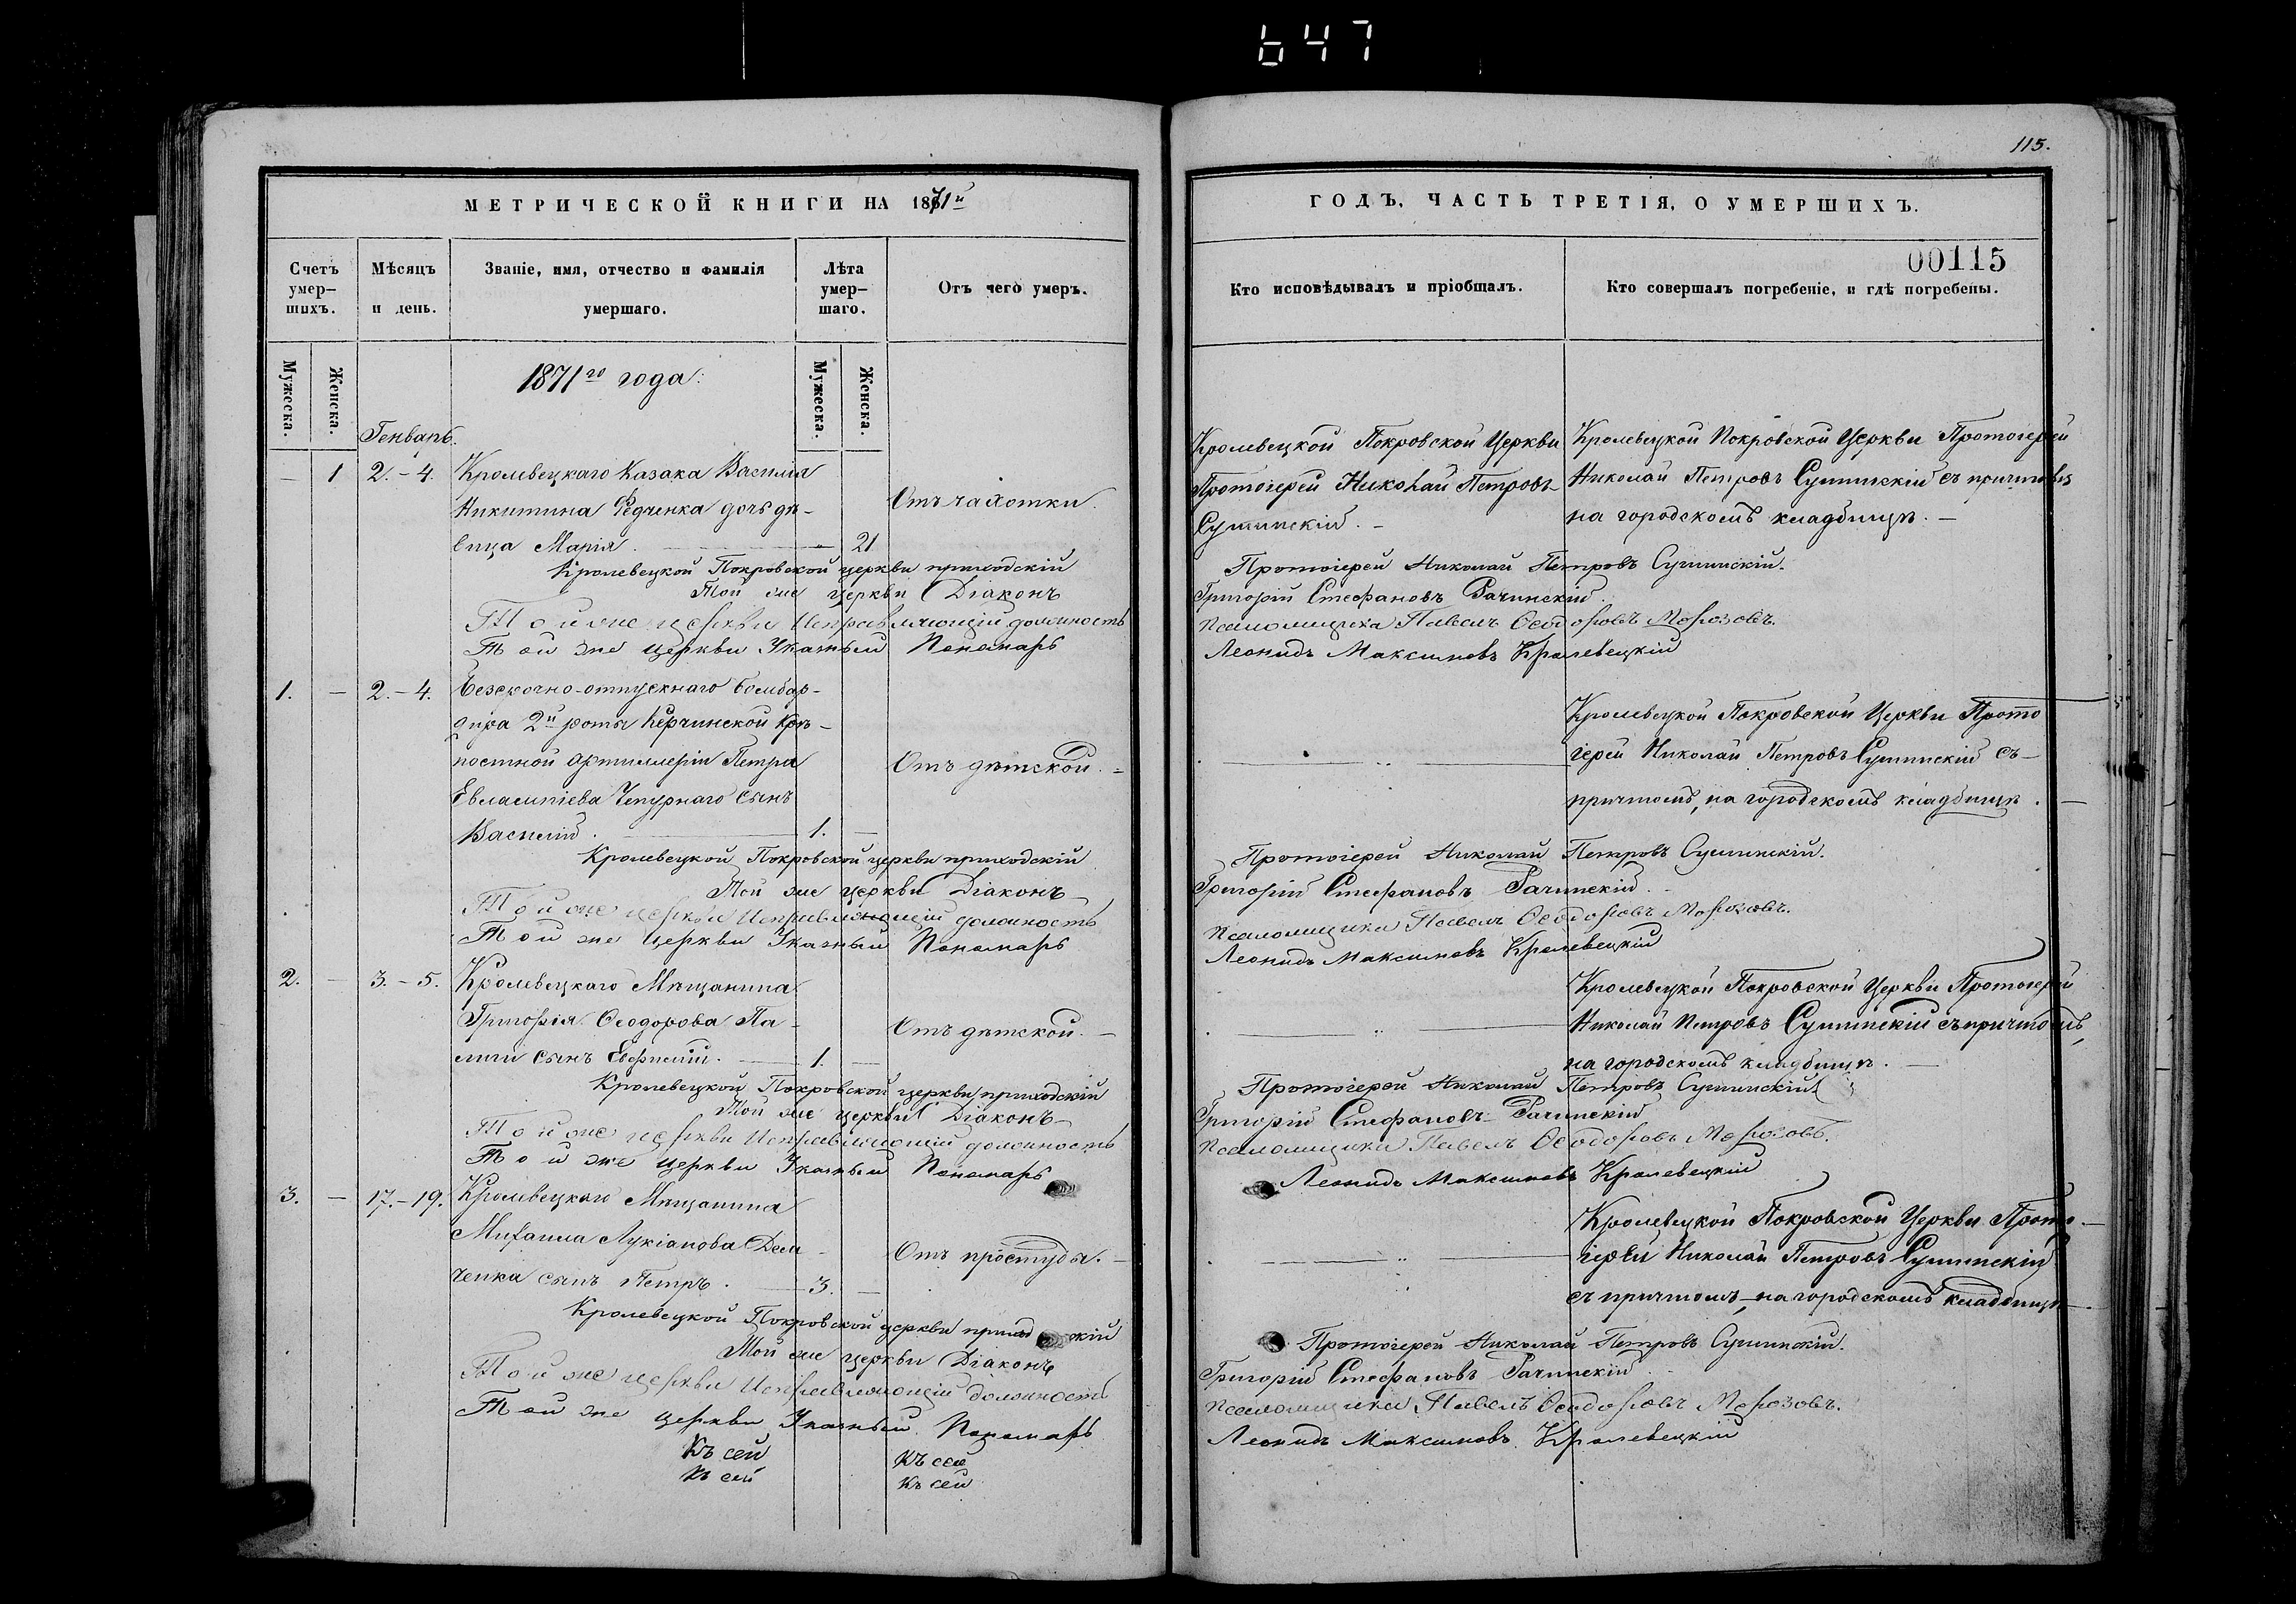 647
115.
МЕТРИЧЕСКОЙ КНИГИ НА 1871й
ГОДЪ, ЧАСТЬ ТРЕТІЯ, О УМЕРШИХЪ.
00115
Счетъ умер-шихъ.
Мѣсяцъ и день.
Званіе, имя, отчество и фамилія умершаго.
Лѣта умер-шаго.
Отъ чего умеръ.
Кто исповѣдывалъ и пріобщалъ.
Кто совершалъ погребеніе, и гдѣ погребены.
Мужеска.
Женска.
Мужеска.
Женска.
1871го года:
Генварь.
— 1 2.-4. Кролевецкаго Казака Василія
Никитина Редченка дочь дѣ-
вица Марія. 21
Отъ чахотки.
Кролевецкой Покровской Церкви
Протоіерей Николай Петровъ
Сушинскій.
Кролевецкой Покровской Церкви Протоіерей
Николай Петровъ Сушинскій съ причтомъ
на городскомъ кладбищѣ.
Кролевецкой Покровской церкви приходскій Протоіерей Николай Петровъ Сушинскій.
Той же церкви Діаконъ Григорій Стефановъ Рачинскій.
Той же церкви Исправляющій должность псаломщика Павелъ Ѳеодоровъ Морозовъ.
Той же церкви Указный Пономарь Леонидъ Максимовъ Кролевецкій
1. — 2.-4. Безсрочно-отпускнаго бомбар-
дира 2й роты Керчинской крѣ-
постной артиллеріи Петра
Евлампіева Чепурнаго сынъ
Василій. 1. —
Отъ дѣтской.
Кролевецкой Покровской Церкви Прото
іерей Николай Петровъ Сушинскій съ
причтомъ, на городскомъ кладбищѣ.
Кролевецкой Покровской церкви приходскій Протоіерей Николай Петровъ Сушинскій.
Той же церкви Діаконъ Григорій Стефановъ Рачинскій.
Той же церкви Исправляющій должность псаломщика Павелъ Ѳеодоровъ Морозовъ.
Той же церкви Указный Пономарь Леонидъ Максимовъ Кролевецкій
2. — 3.-5. Кролевецкаго Мѣщанина
Григорія Ѳеодорова Па-
лиги сынъ Евфимій. 1. —
Отъ дѣтской.
Кролевецкой Покровской Церкви Протоіерей
Николай Петровъ Сушинскій съ причтомъ,
на городскомъ кладбищѣ.
Кролевецкой Покровской церкви приходскій Протоіерей Николай Петровъ Сушинскій
Той же церкви Діаконъ Григорій Стефановъ Рачинскій
Той же церкви Исправляющій должность псаломщика Павелъ Ѳеодоровъ Морозовъ.
Той же церкви Указный Пономарь Леонидъ Максимовъ Кролевецкій
3. — 17.-19. Кролевецкаго Мѣщанина
Михаила Лукіанова Дем
ченка сынъ Петръ. 3. —
Отъ простуды.
Кролевецкой Покровской Церкви Прото-
іерей Николай Петровъ Сушинскій
съ причтомъ, на городскомъ кладбищѣ.
Кролевецкой Покровской церкви приходскій Протоіерей Николай Петровъ Сушинскій.
Той же церкви Діаконъ Григорій Стефановъ Рачинскій
Той же церкви Исправляющій должность псаломщика Павелъ Ѳеодоровъ Морозовъ.
Той же церкви Указный Пономарь Леонидъ Максимовъ Кролевецкій
Къ сей Къ сей
Къ сей Къ сей